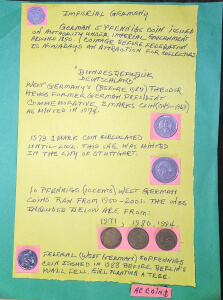 IMPERIAL GERMANY
GERMAN 5 PFENNIGS COIN ISSUED
ON AUTHORITY UNDER IMPERIAL GOVERNMENT
AROUND 1900. COINAGE BEFORE FEDERATION
IS ALWAYS AN ATTRACTION FOR COLLECTORS
"BUNDESREPUBLIK
DEUTSCHLAND"
WEST GERMANY'S THEODOR
HEUSS FORMER GERMAN PRESIDENT
COMMEMORATIVE 2 MARKS COIN
AS MINTED IN 1974.
1 MARK COIN CIRCULATED
UNTIL 2002. THIS WAS MINTED
IN THE CITY OF STUTTGART.
10 PFENNIGS WEST GERMAN
COINS RAN FROM 1950-2001. THE ONES
INCLUDED BELOW ARE FROM:
1971, 1980, 1984
FEDERAL (WEST GERMANY) 50 PFENNIG
COIN ISSUED IN 1988 BEFORE BERLIN'S
WALL FELL. GIRL PLANTING A TREE